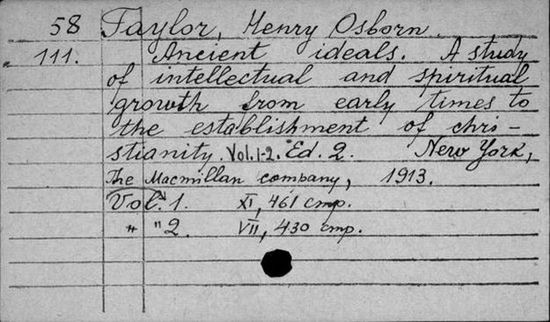 58 Taylor, Henry Osborn.
111. Ancient ideals. A study
of intellectual and spiritual
growth from early times to
the establishment of chri-
stianity. Vol. 1-2. Ed. 2. New York,
The Macmillan company, 1913.
Vol. 1. XI, 461 стр.
" " 2. VII, 430 стр.